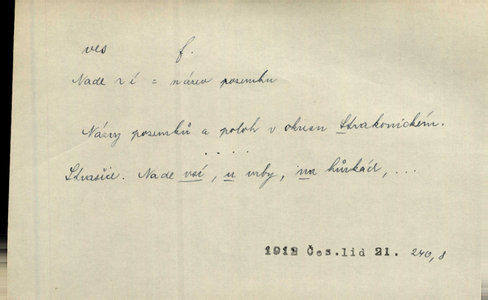 ves f.
Nade vsí = název pozemku
Názvy pozemků a poloh v okresu Strakonickém.
. . . .
Strašice. Nade vsí, u vrby, na hůrkách, ...
1912 Čes.lid 21. 240,8